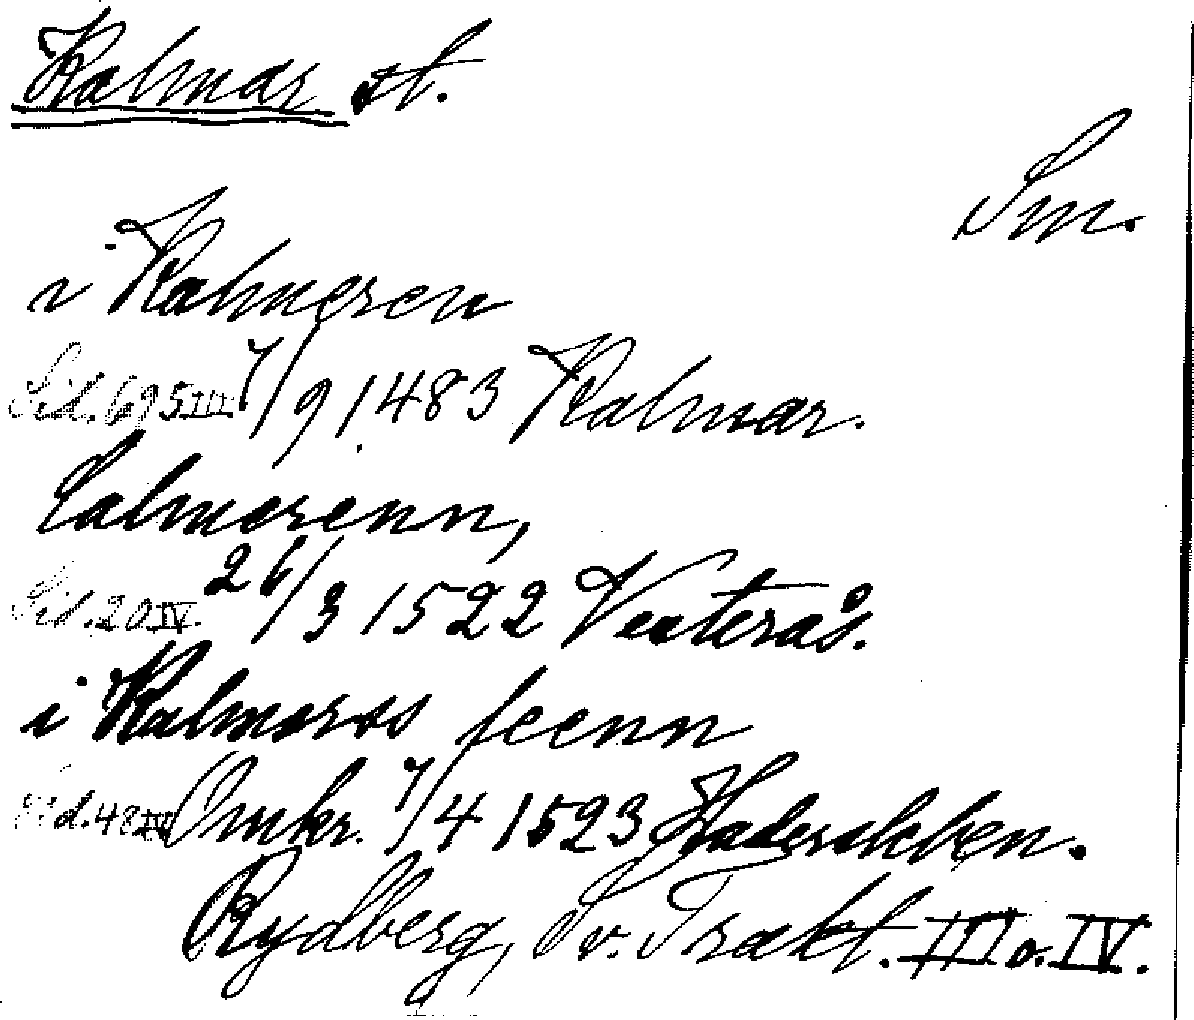 Kalmar st.
Sm.
i Kalmeren
Sid. 695 III 7/9 1483 Kalmar.
Calmerenn,
Sid. 20 IV. 26/3 1522 Vesterås.
i Kalmeres feenn
Sid. 48 IV Omkr. 7/4 1523 Hadersleben.
Rydberg, Sv. Trakt. III o. IV.